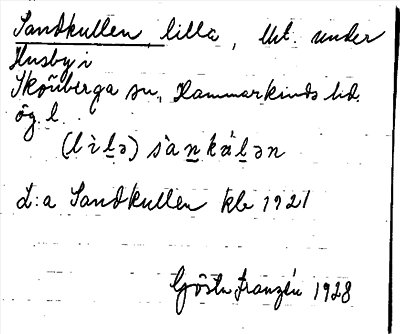 Sandkullen, lilla, lht. under
Husby i
Skönberga sn, Hammarkinds hd.
ög. l.
(lìlə) sànkálən
L:a Sandkullen kbr 1921
Gösta Franzén 1928